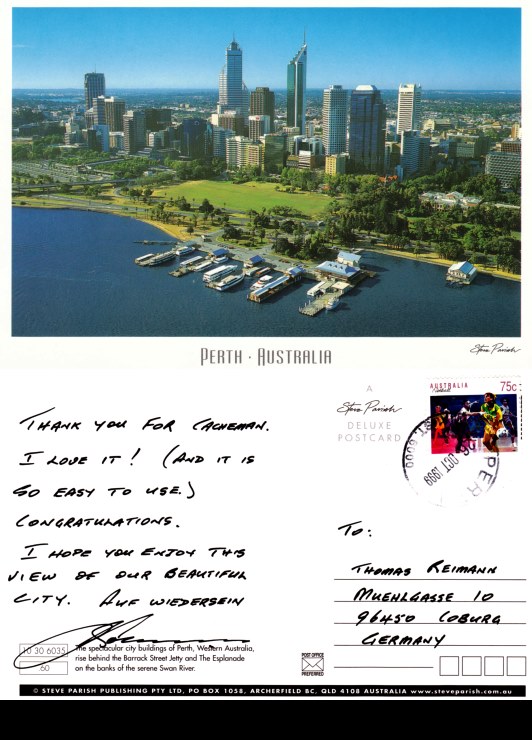 PERTH · AUSTRALIA
Steve Parish
A
Steve Parish
DELUXE
POSTCARD
AUSTRALIA
75c
26 OCT 1999
6000
THANK YOU FOR CACHEMAN.
I LOVE IT! (AND IT IS
SO EASY TO USE.)
CONGRATULATIONS.
I HOPE YOU ENJOY THIS
VIEW OF OUR BEAUTIFUL
CITY. AUF WIEDERSEIN
TO:
THOMAS REIMANN
MUEHLGASSE 10
96450 COBURG
GERMANY
10 30 6035
60
The spectacular city buildings of Perth, Western Australia,
rise behind the Barrack Street Jetty and The Esplanade
on the banks of the serene Swan River.
POST OFFICE
PREFERRED
© STEVE PARISH PUBLISHING PTY LTD, PO BOX 1058, ARCHERFIELD BC, QLD 4108 AUSTRALIA www.steveparish.com.au